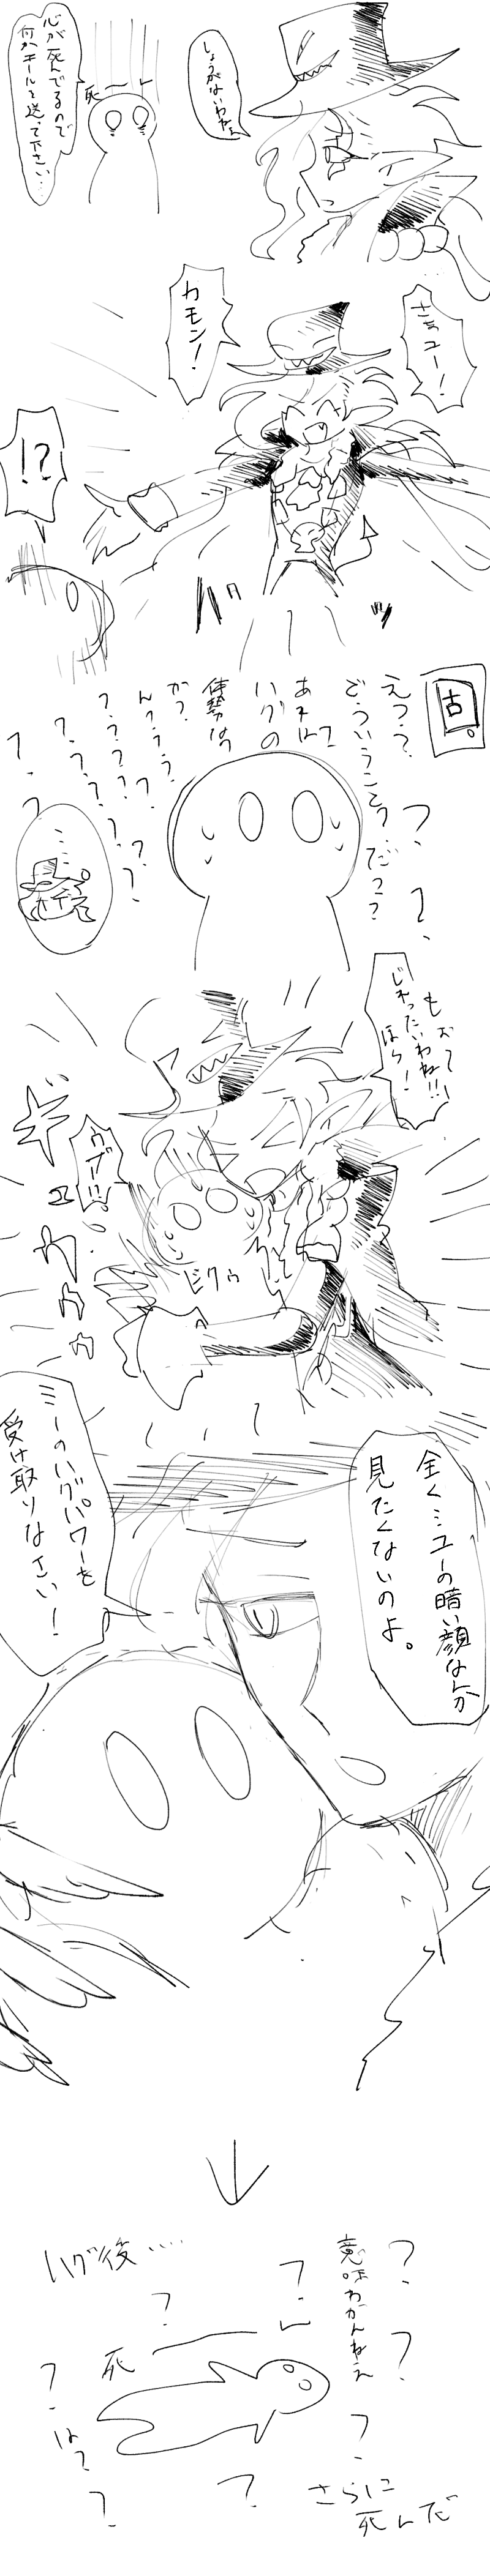 しょうがないわねぇ
死ーン
心が死んでるので
何かエールを送って下さい…
さぁユー!
カモン!
!?
バッ
古。
えっ?
どういうこと?だ??
?
あれは
ハグの
体勢なっ
か?
ん????
?????
????
??
もぉ〜
じれったいわね!!
ほら!
ギュウウウ
ビクゥ
全くミユーの暗い顔なんか
見たくないのよ。
ミーのハグパワーを
受け取りなさい!
↓
ハグ後....
?
意味わかんねえ
?
?
死ーン
?
は?
?
さらに
死んだ